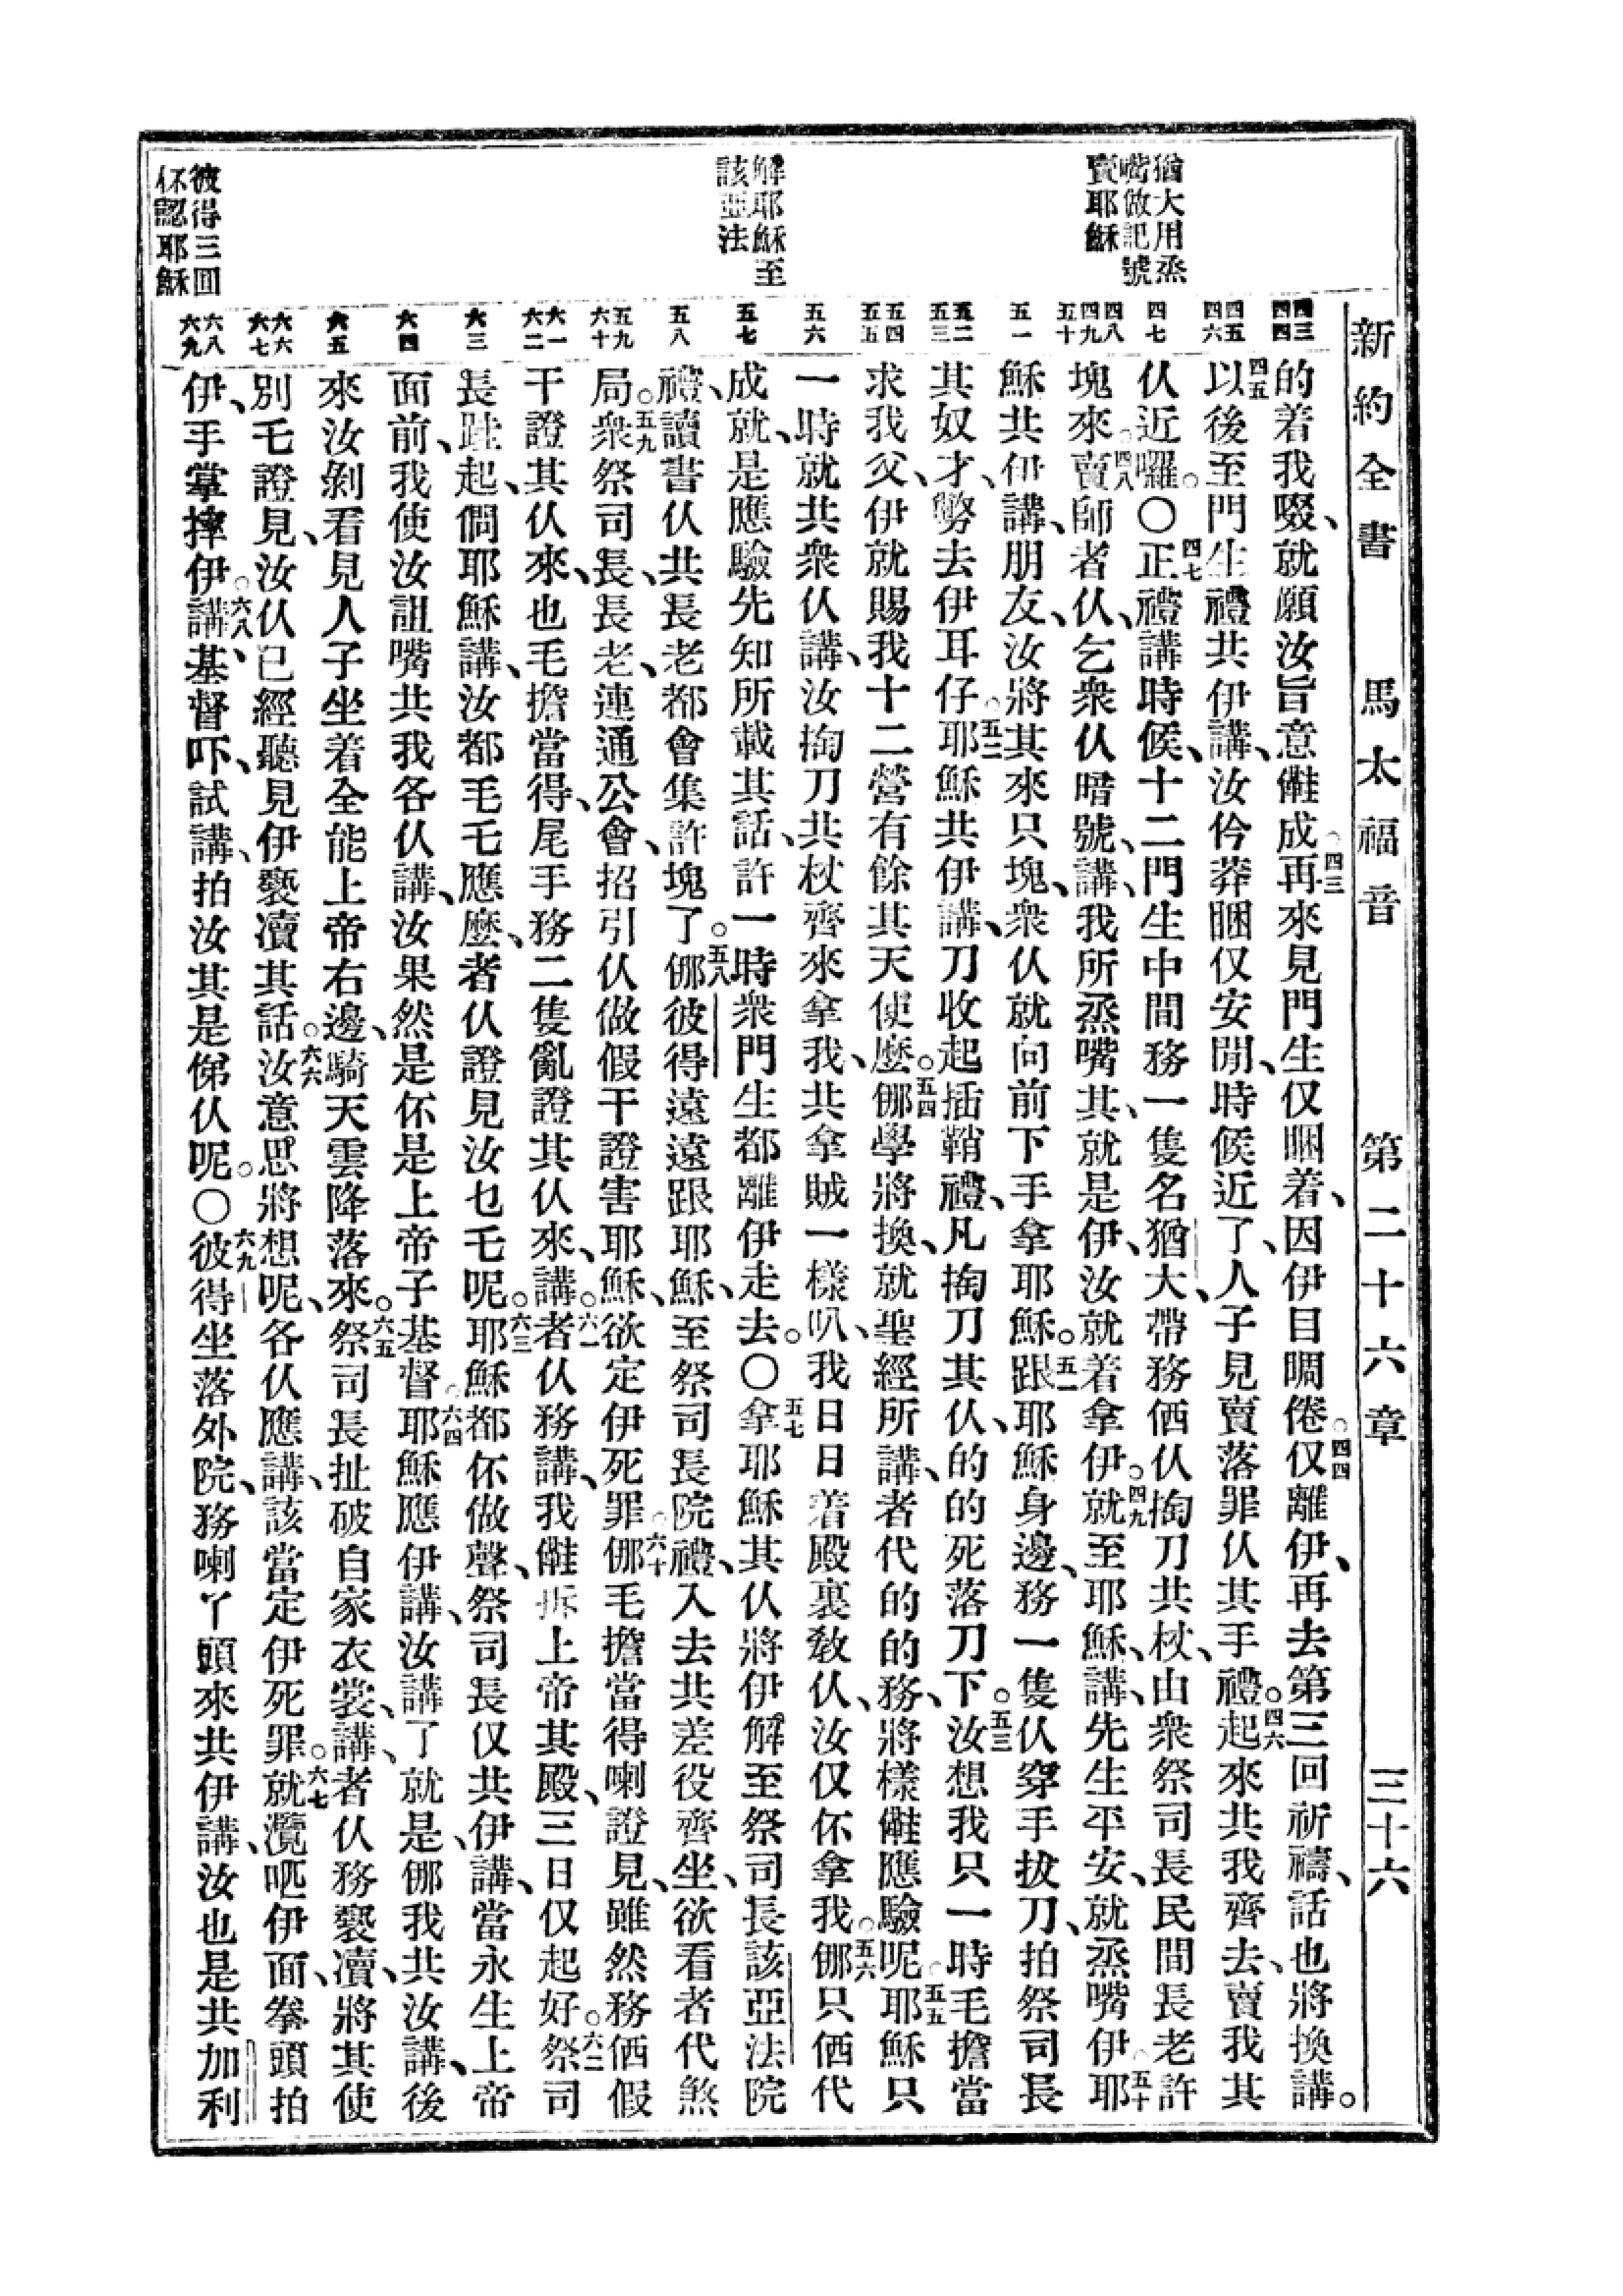 新約全書　馬太福音　第二十六章　三十六
猶大用烝
嘴做記號
賣耶穌
解耶穌至
該亞法
彼得三回
伓認耶穌
四三
四四
四五
四六
四七
四八
四九
五十
五一
五二
五三
五四
五五
五六
五七
五八
五九
六十
六一
六二
六三
六四
六五
六六
六七
六八
六九
的着我啜、就願汝旨意儺成。四三再來見門生仅睏着、因伊目睭倦。四四仅離伊、再去第三回祈禱、話也將換講。
四五以後至門生禮共伊講、汝仱莽睏仅安閒、時候近了、人子見賣落罪仈其手禮。四六起來共我齊去、賣我其
仈近囉。〇四七正禮講時候、十二門生中間務一隻名猶大、帶務㑚仈掏刀共杖、由衆祭司長民間長老許
塊來。四八賣師者仈、乞衆仈暗號、講、我所烝嘴其、就是伊、汝就着拿伊。四九就至耶穌、講、先生平安、就烝嘴伊。五十耶
穌共伊講、朋友、汝將其來只塊、衆仈就向前下手拿耶穌。五一跟耶穌身邊、務一隻仈穿手拔刀、拍祭司長
其奴才、劈去伊耳仔。五二耶穌共伊講、刀收起插鞘禮、凡掏刀其仈、的的死落刀下。五三汝想我只一時毛擔當
求我父、伊就賜我十二營有餘其天使麽。五四㑚學將換、就聖經所講、者代的的務、將樣儺應驗呢。五五耶穌只
一時就共衆仈講、汝掏刀共杖齊來拿我、共拿賊一樣叭、我日日着殿裏敎仈、汝仅伓拿我。五六㑚只㑚代
成就、是應驗先知所載其話、許一時衆門生都離伊走去。〇五七拿耶穌其仈將伊解至祭司長該亞法院
禮、讀書仈共長老都會集許塊了。五八㑚彼得遠遠跟耶穌、至祭司長院禮、入去共差役齊坐、欲看者代煞
局。五九衆祭司長、長老、連通公會、招引仈做假干證害耶穌、欲定伊死罪。六十㑚毛擔當得喇證見、雖然務㑚假
干證其仈來、也毛擔當得、尾手務二隻亂證其仈來、講。六一者仈務講、我儺拆上帝其殿、三日仅起好。六二祭司
長跬起、問耶穌講、汝都毛乇應麽、者仈證見汝乜乇呢。六三耶穌都伓做聲、祭司長仅共伊講、當永生上帝
面前、我使汝詛嘴共我各仈講、汝果然是伓是上帝子基督。六四耶穌應伊講、汝講了就是、㑚我共汝講、後
來汝剝看見人子坐着全能上帝右邊、騎天雲降落來。六五祭司長扯破自家衣裳、講、者仈務褻瀆、將其使
別乇證見、汝仈已經聽見伊褻瀆其話。六六汝意思將想呢、各仈應講、該當定伊死罪。六七就瀺呸伊面、拳頭拍
伊、手掌摔伊。六八講、基督吓、試講、拍汝其是俤仈呢。〇六九彼得坐落外院、務喇丫頭來共伊講、汝也是共加利